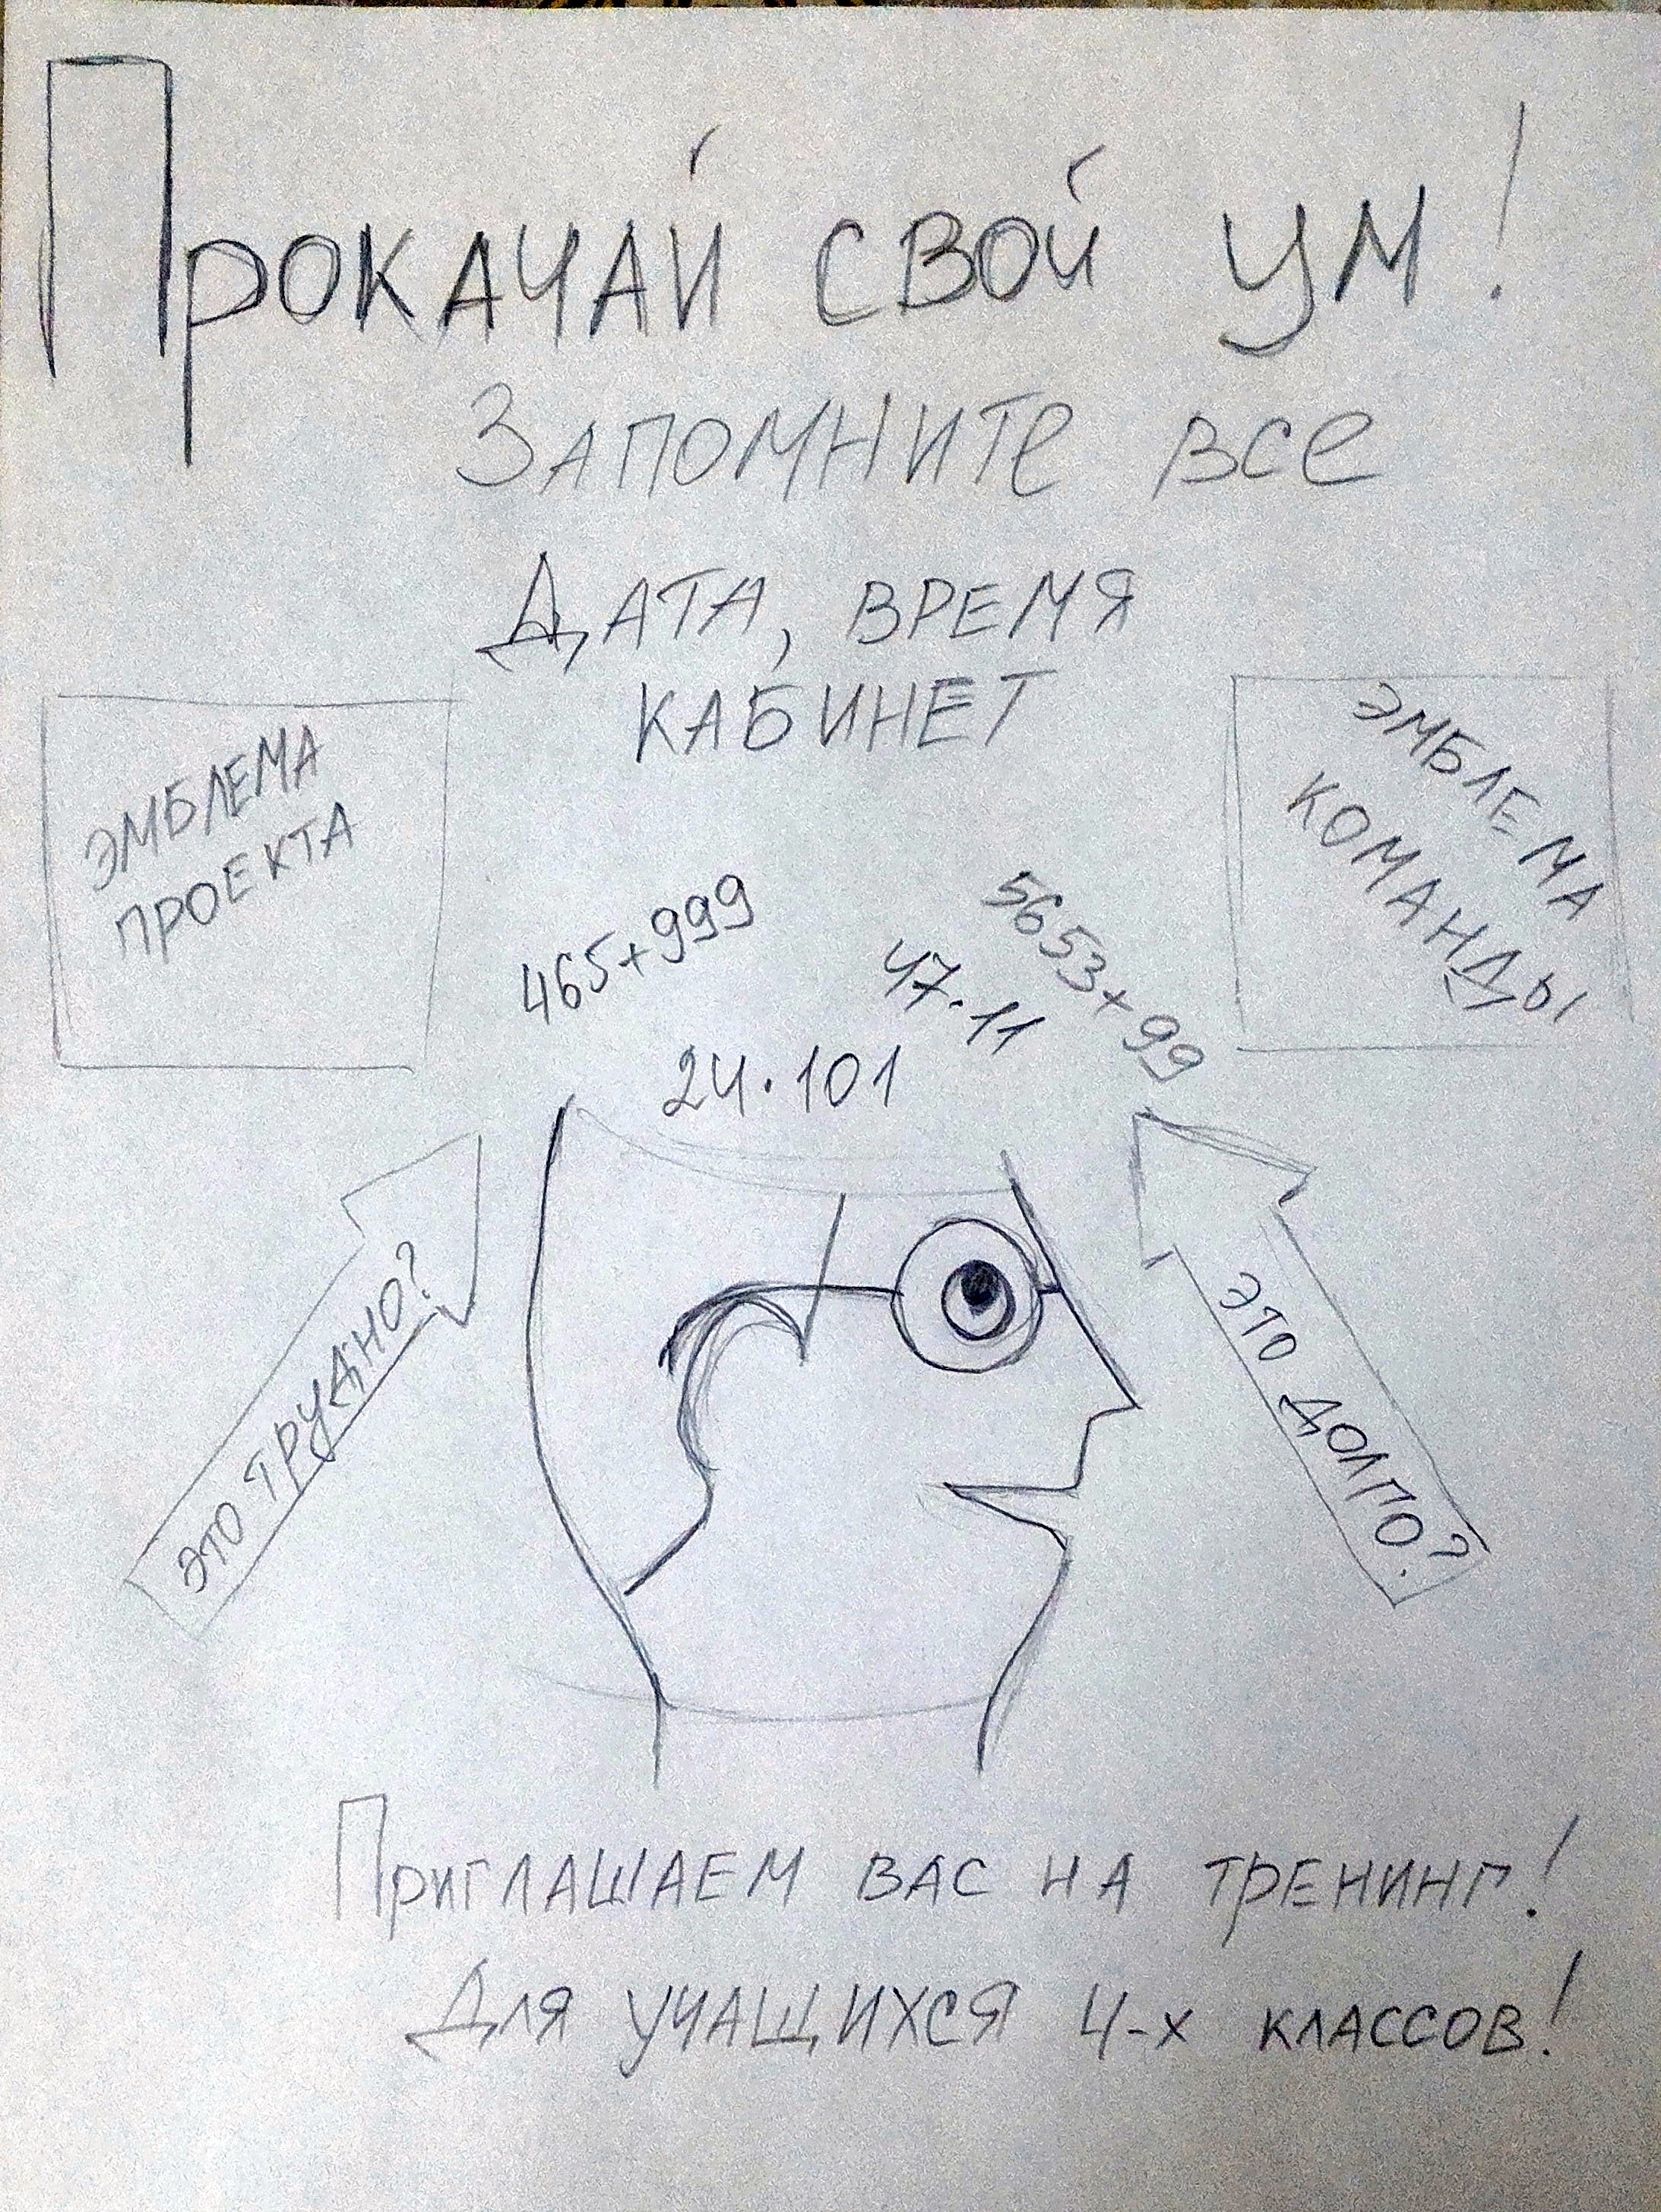 Прокачай свой ум!
Запомните все
Дата, время
кабинет
эмблема
проекта
эмблема
команды
465+999
5653+99
47·11
24·101
это трудно?
это долго?
Приглашаем вас на тренинг!
Для учащихся 4-х классов!